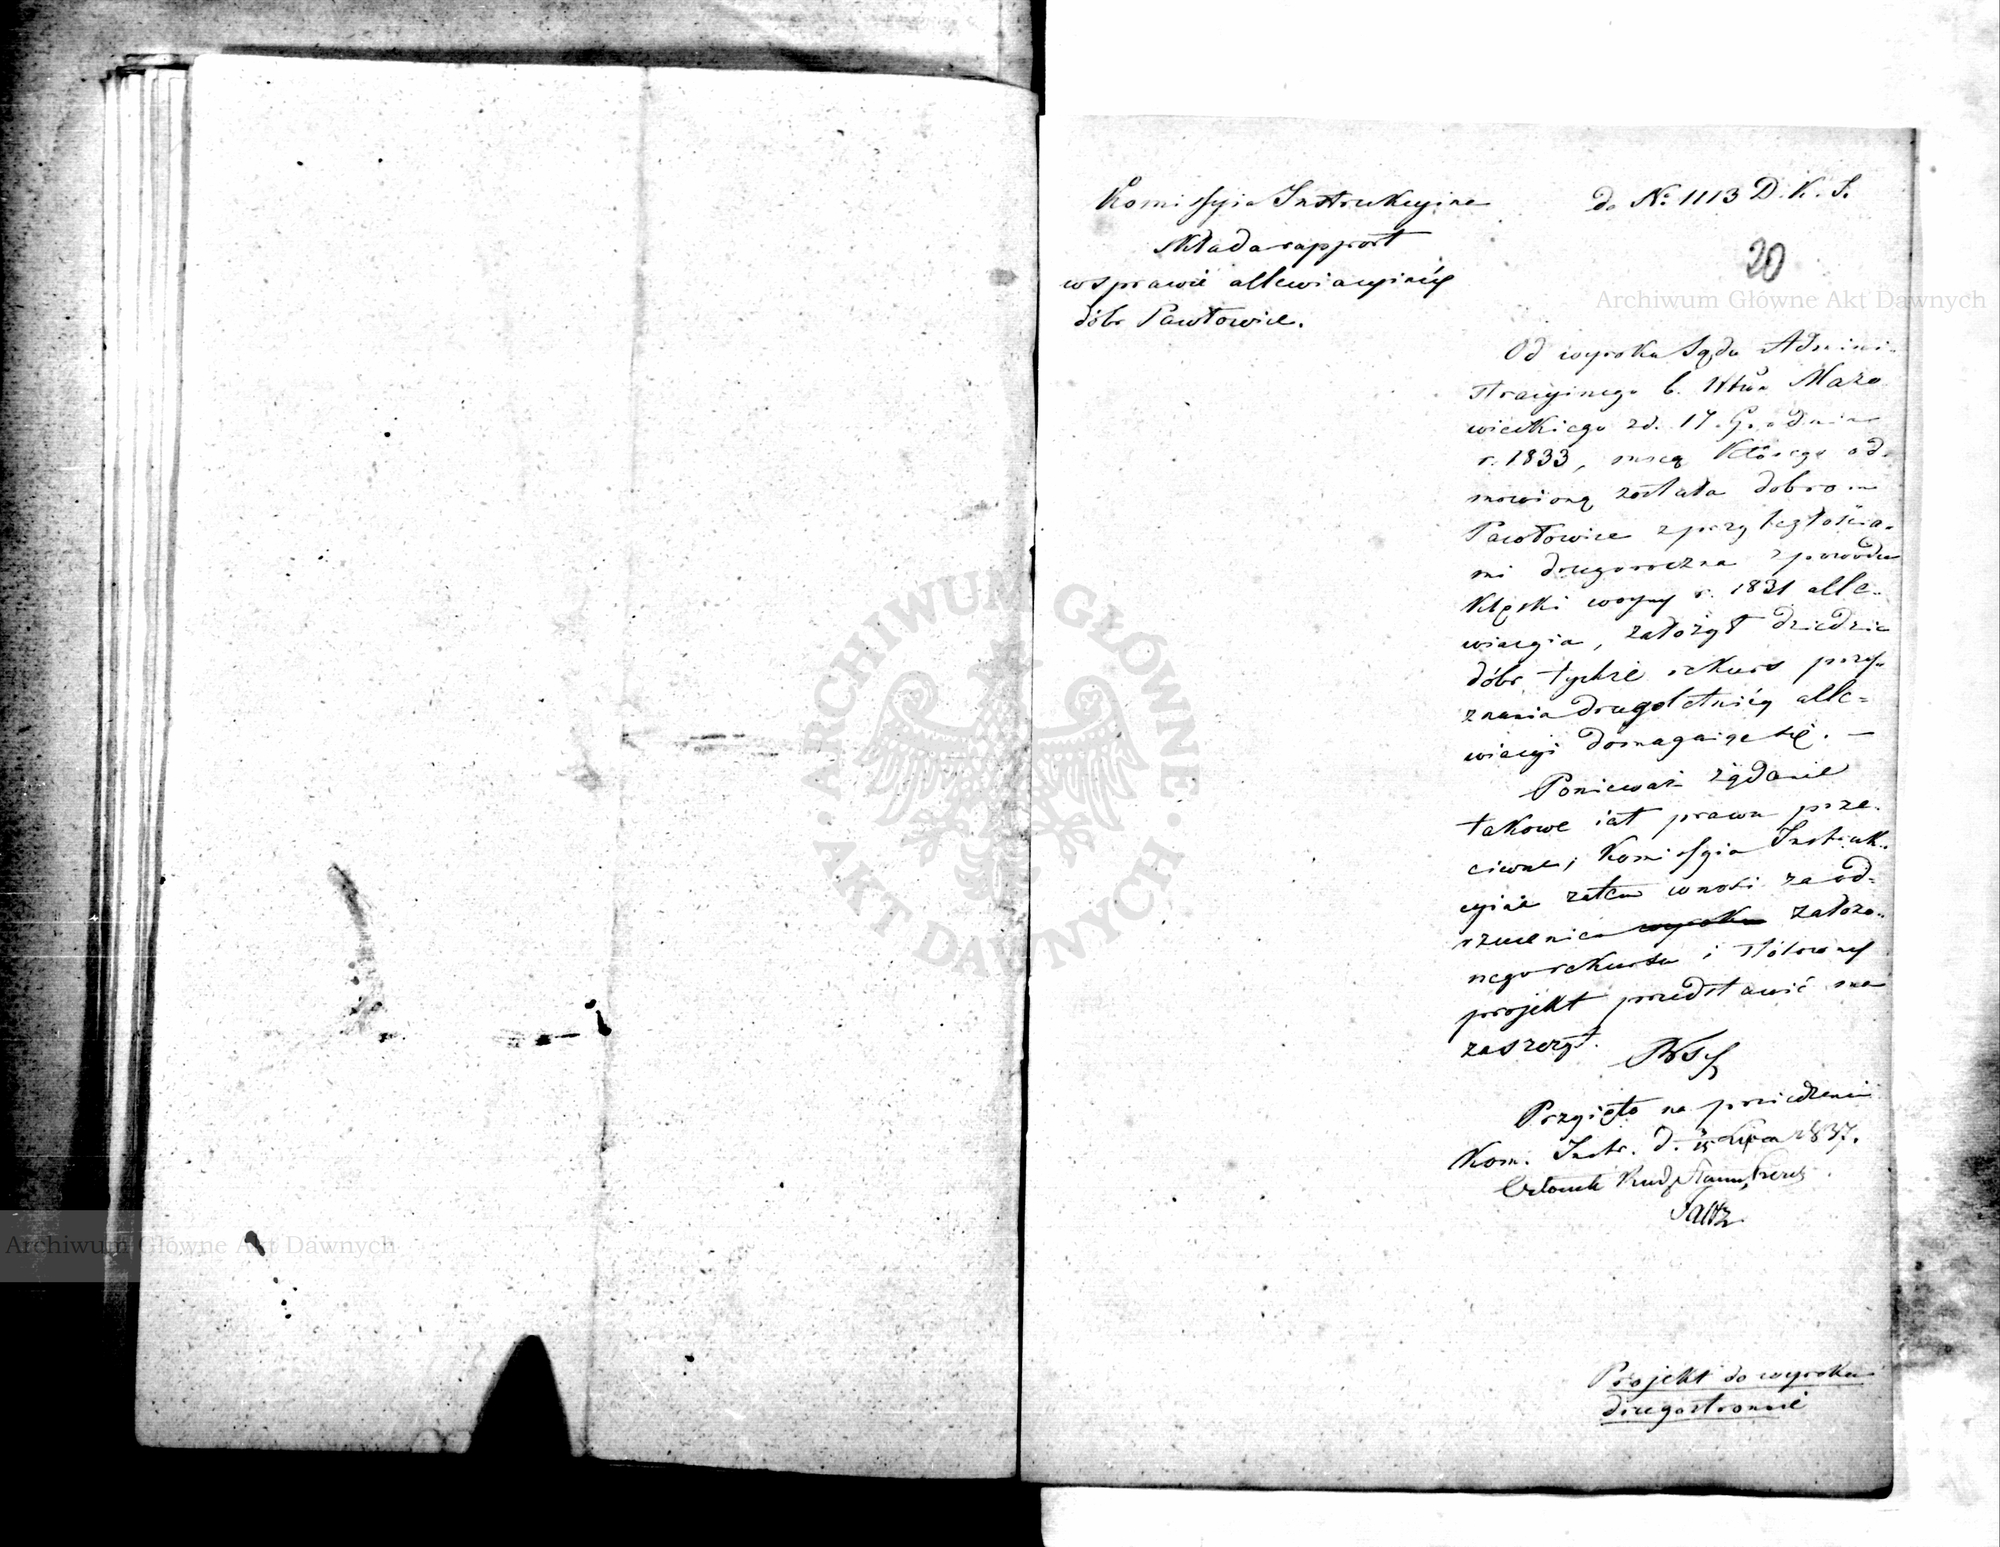 Komissyia Instrukcyina
składa rapport
w sprawie allewiacyinéy
dóbr Pawłowice.
do No. 1113 D. K. S.
20
Archiwum Główne Akt Dawnych
Od wyroku Sądu Admini-
stracyinego b. Wtwa Mazo
wieckiego z d. 17. Grudnia
r. 1833, mocą którego od-
mówioną została dobrom
Pawłowice z przyległościa-
mi drugoroczna z powodu
klęski woyny r. 1831 alle-
wiacyia, założył dziedzic
dóbr tychże rekurs przy-
znania drugoletniéy alle-
wiacyi domagaiąc się. —
Ponieważ żądanie
takowe iest prawu prze-
ciwne, Komissyia Instruk-
cyina zatem wnosi za od-
rzucenie wyroku założo-
nego rekursu i stósowny
projekt przedstawić ma
zaszczyt.
Przyięto na posiedzeniu
Kom. Instr. d. Lipca 1837.
Członek
Projekt do wyroku
drugostronnie
ARCHIWUM GŁÓWNE
AKT DAWNYCH
Archiwum Główne Akt Dawnych